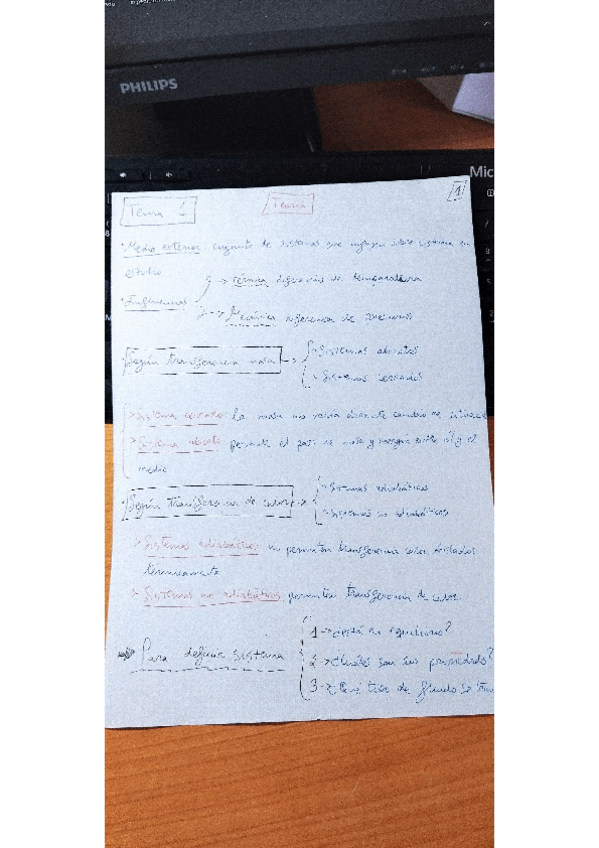 PHILIPS
Mic
1
Tema 1
Teoría
Medio externo conjunto de sistemas que influyen sobre sistema en
estudio
Influencias
→ Térmica diferencias de temperatura
→ Mecánica diferencia de presiones
Según transferencia masa →
Sistemas abiertos
Sistemas cerrados
Sistema cerrado la masa no varía durante cambio de
Sistema abierto permite el paso de masa y energía entre él y el
medio
Según transferencia de calor →
Sistemas adiabáticos
Sistemas no adiabáticos
Sistemas adiabáticos no permiten transferencia calor. Aislados
térmicamente
Sistemas no adiabáticos permiten transferencia de calor.
Para definir sistema
1 → ¿está en equilibrio?
2 → ¿Cuáles son sus propiedades?
3 → ¿Qué tipo de fluido se